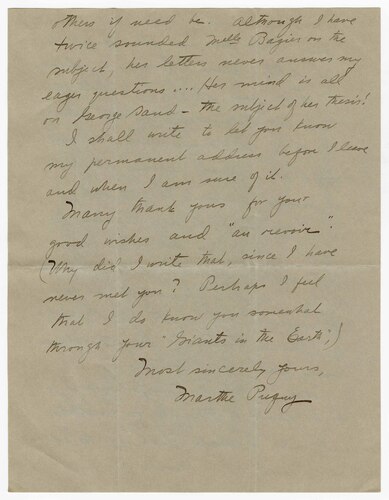 others if need be, although I have
twice sounded Melle Bazier on the
subject, her letters never answer my
eager questions .... Her mind is all
on George Sand - the subject of her thesis!
I shall write to let you know
my permanent address before I leave
and when I am sure of it.
Many thank yous for your
good wishes and "au revoir".
(Why did I write that, since I have
never met you? Perhaps I feel
that I do know you somewhat
through your "Giants in the Earth".)
Most sincerely yours,
Marthe